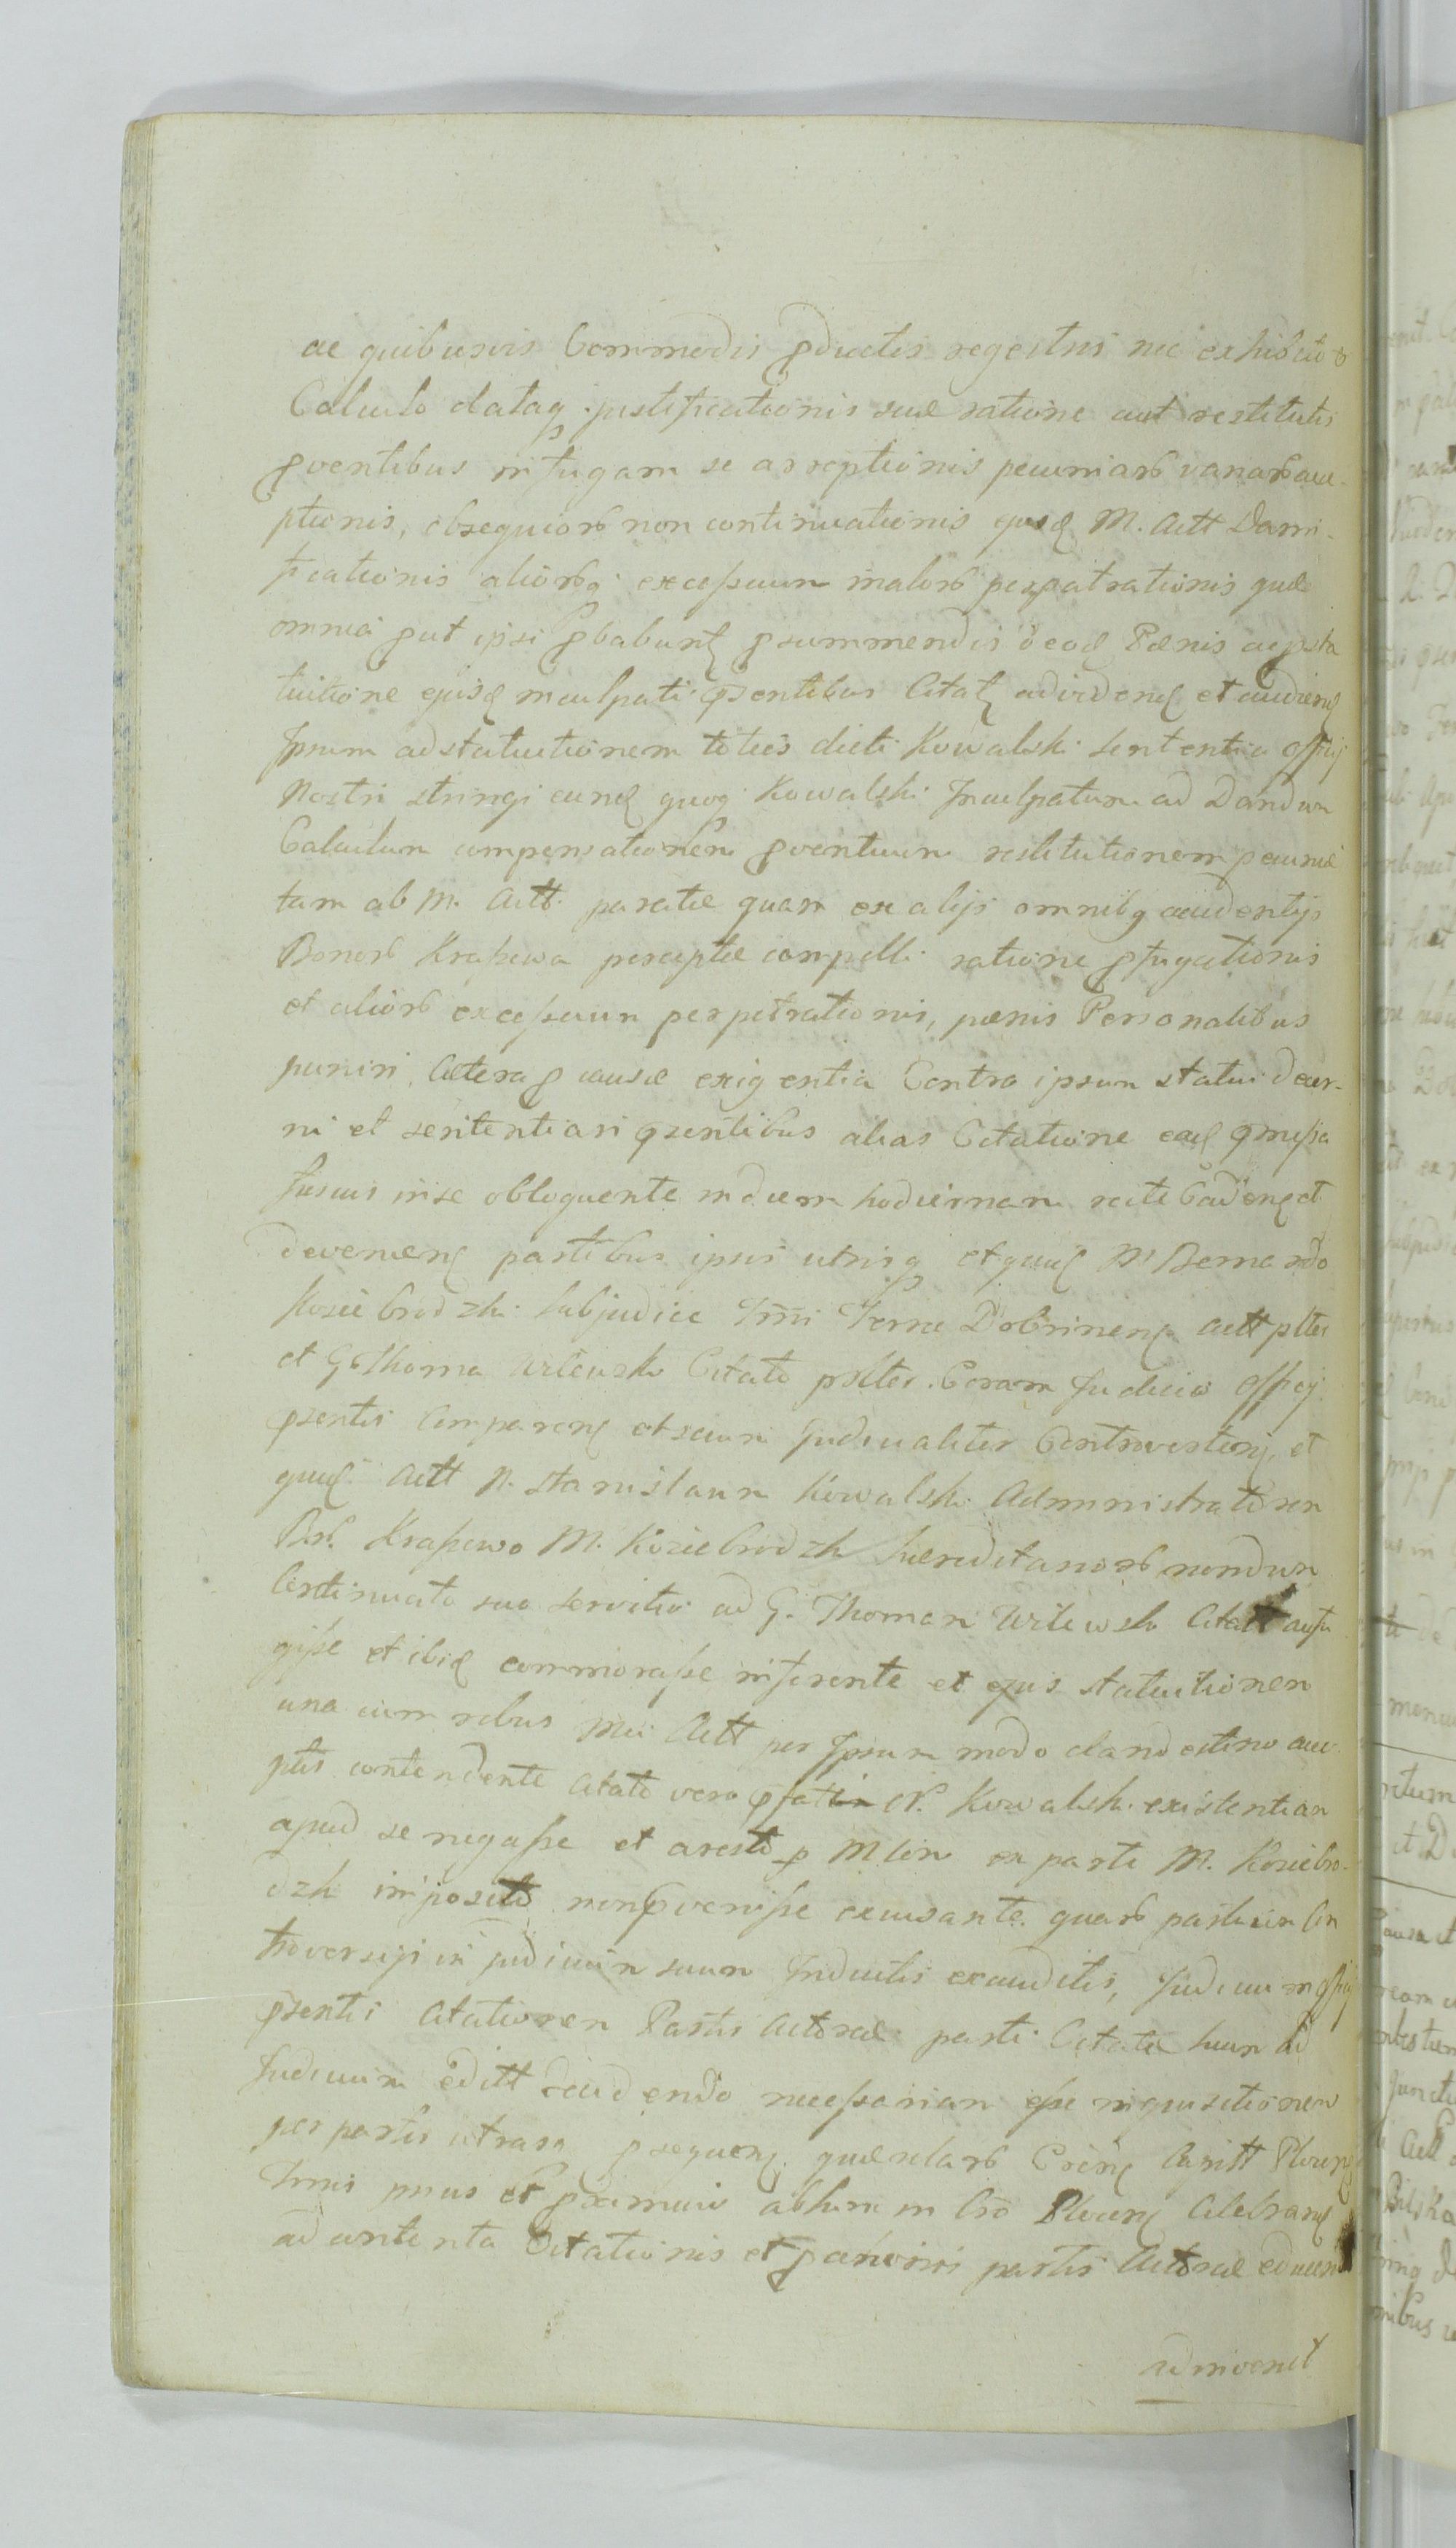 ac quibusvis Commodis pductis regestris nec exhibito
Calculo dataq justificationis suæ ratione aut restitutis
pventibus in fugam se arreptionis pecuniarb variarb acce-
ptionis, obsequiorb non continuationis ejusd M. Actt Damni-
ficationis aliorbq excessuum malorb perpatrationis quæ
omnia put ipsi pbabunt psummendis de eod Pænis ac psta
tuitione ejusd inculpati psentibus Citat ad vidend et audiend
Ipsum ad statuitionem toties dicti Kowalski Sententia Offcij
Nostri stringi eund quoq Kowalski Inculpatum ad Dandum
Calculum compensationem pventuum restitutionem pecuniæ
tam ab M. Actt. paratæ quam ex alijs omnibq accidentijs
Bonorb Krajewa perceptæ compelli ratione pfugationis
et aliorb excessuum perpetrationis, pænis Personalibus
puniri, Cætera p causæ exigentia Contra ipsum statui decer-
ni et sententiari psentibus alias Citatione ead pmissa
fusius in se obloquente in diem hodiernam recte Cadenq et
devenienq partibus ipsis utrisq et quid M. Bernardo
Kosiebrodzki Subjudice Trri Terræ Dobrinenq Actt pltei
et G. Thoma Wilewski Citato psltei. Coram Judicio Offcij
psentis Comparenq et secum Judicialiter Controvertenq, et
quid Actt N. Stanislaum Kowalski Administratorem
Brb. Krajewo M. Kosiebrodzki hæreditariorb nondum
Continuato suo servitio ad G. Thomam Wilewski Citatt aufu
gisse et ibid commorasse inferente et ejus statuitionem
una cum rebus Mci Actt per Ipsum modo clandestino acce
ptis contendente Citato vero pfati N. Kowalski existentiam
apud se negasse et aresto p Mlem ex parte M. Kosiebro-
dzki imposito non pvenisse excusante. quarb partium Con
troversijs in judicium suum Inductis exauditis, Judicium Offcij
psentis Citationem Partis Actoreæ parti Citatæ suum ad
Judicium editt decidendo necessariam esse inquisitionem
per partes utrasq psequenq quærelarb Crimq Castt Plocenq
Trmis prius et pximuis abhinc in Cro Plocenq Celebranq
ad contenta Citationis et parboni partis Actoreæ educen
adinvenit